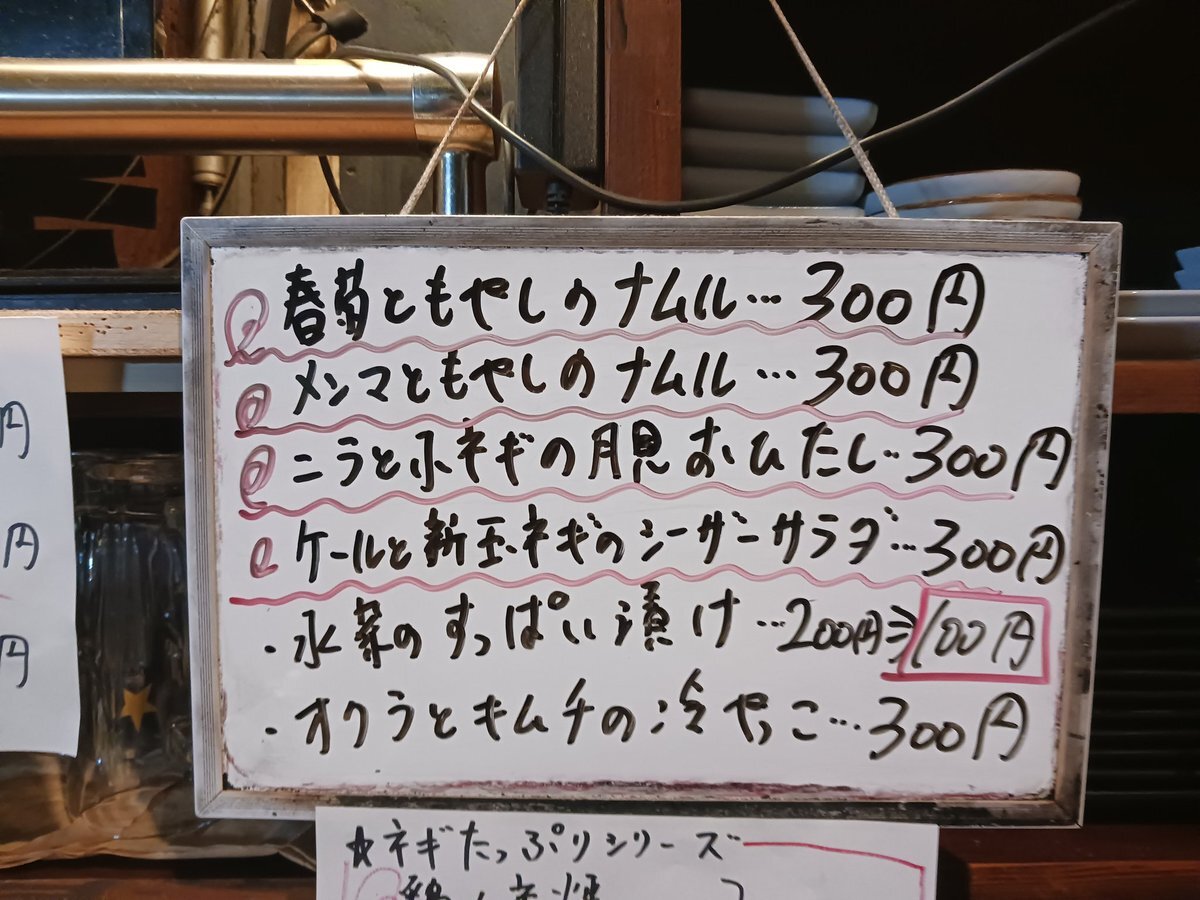 春菊ともやしのナムル…300円
メンマともやしのナムル…300円
ニラと小ネギの月見おひたし..300円
ケールと新玉ネギのシーザーサラダ…300円
・水菜のすっぱい漬け…200円⇒100円
・オクラとキムチの冷やっこ…300円
☆ネギたっぷりシリーズ
円
円
円